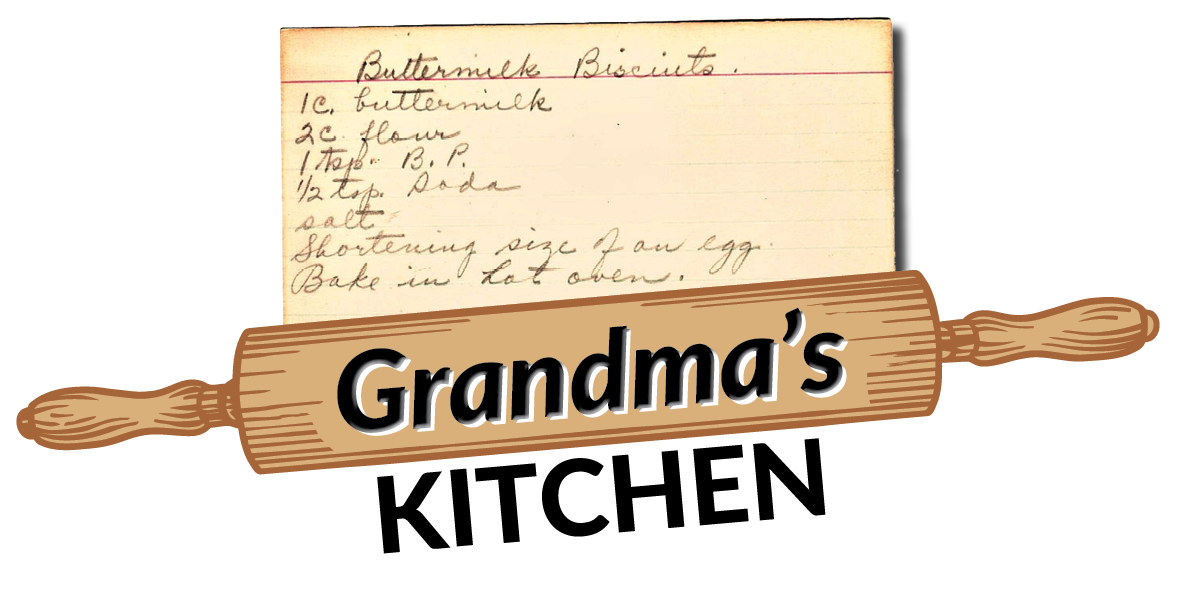 Buttermilk Biscuits.
1c. buttermilk
2c. flour
1 tsp. B. P.
1/2 tsp. Soda
salt
Shortening size of an egg.
Bake in hot oven.
Grandma's
KITCHEN